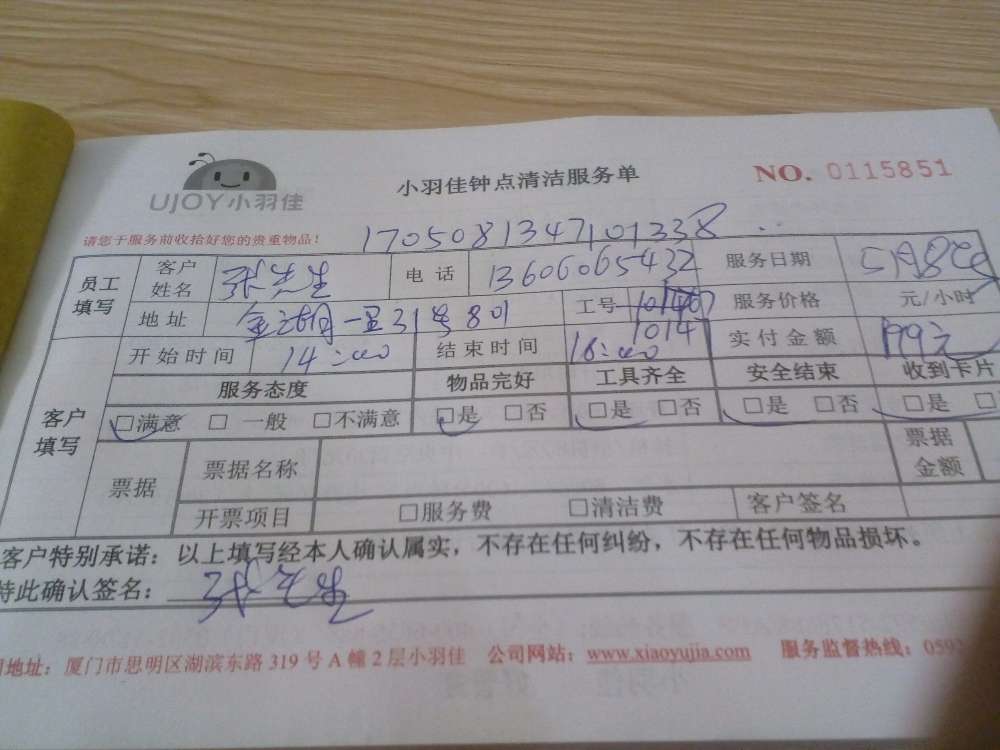 UJOY小羽佳
小羽佳钟点清洁服务单
NO. 0115851
请您于服务前收拾好您的贵重物品!
1705081347101338
员工填写 客户姓名 张先生 电话 13606065432 服务日期 5月8日
地址 一里31号801 工号 1014 服务价格 元/小时
客户填写 开始时间 14:00 结束时间 16:00 实付金额 199元
服务态度 物品完好 工具齐全 安全结束 收到卡片
□满意 □一般 □不满意 □是 □否 □是 □否 □是 □否 □是 □
票据 票据名称 票据金额
开票项目 □服务费 □清洁费 客户签名
客户特别承诺:以上填写经本人确认属实,不存在任何纠纷,不存在任何物品损坏。
特此确认签名: 张先生
地址:厦门市思明区湖滨东路319号A幢2层小羽佳 公司网站:www.xiaoyujia.com 服务监督热线:0592